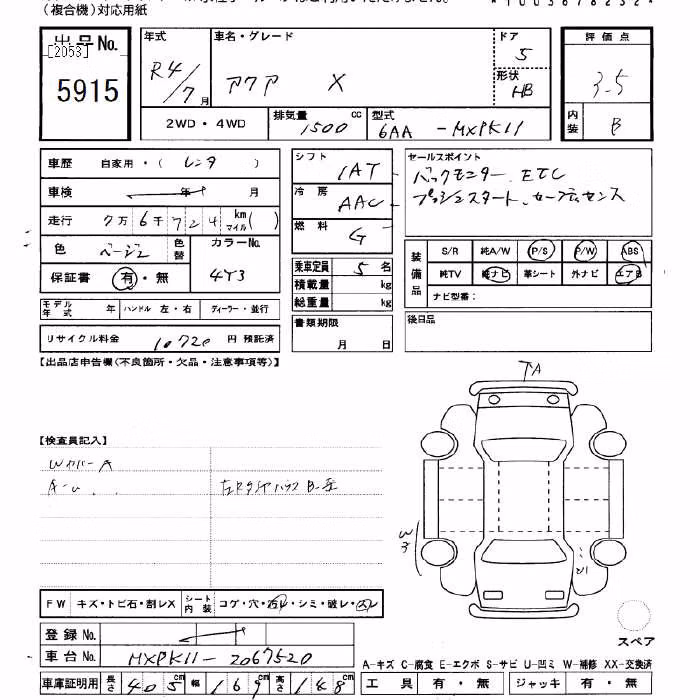 (複合機)対応用紙
*1003678232*
出品No. [2053] 5915
年式 R4/7月
車名・グレード アクア X
ドア 5
形状 HB
評価点 3.5
内装 B
2WD・4WD
排気量 1500 cc
型式 6AA-MXPK11
車歴 自家用・(レンタ)
車検 年 月
走行 7万6千724 km マイル( )
色 ベージュ 色替
カラーNo. 4Y3
保証書 有・無
モデル年式 年 ハンドル 左・右 ディーラー・並行
リサイクル料金 10720 円 預託済
シフト IAT
冷房 AAC
燃料 G
乗車定員 5 名
積載量 kg
総重量 kg
書類期限 月 日
セールスポイント
バックモニター、ETC
プッシュスタート、セーフティセンス
装備品 S/R 純A/W P/S P/W ABS
純TV 純ナビ 革シート 外ナビ エアB
ナビ型番:
後日品
【出品店申告欄(不良箇所・欠品・注意事項等)】
A
【検査員記入】
Wカバー A
A-U
W3
FW キズ・トビ石・割レX シート内装 コゲ・穴・汚レ・シミ・破レ・凹レ
登録No.
車台No. MXPK11-2067520
スペア
A-キズ C-腐食 E-エクボ S-サビ U-凹ミ W-補修 XX-交換済
車庫証明用 長さ 405cm 幅 169cm 高さ 148cm
工具 有・無 ジャッキ 有・無